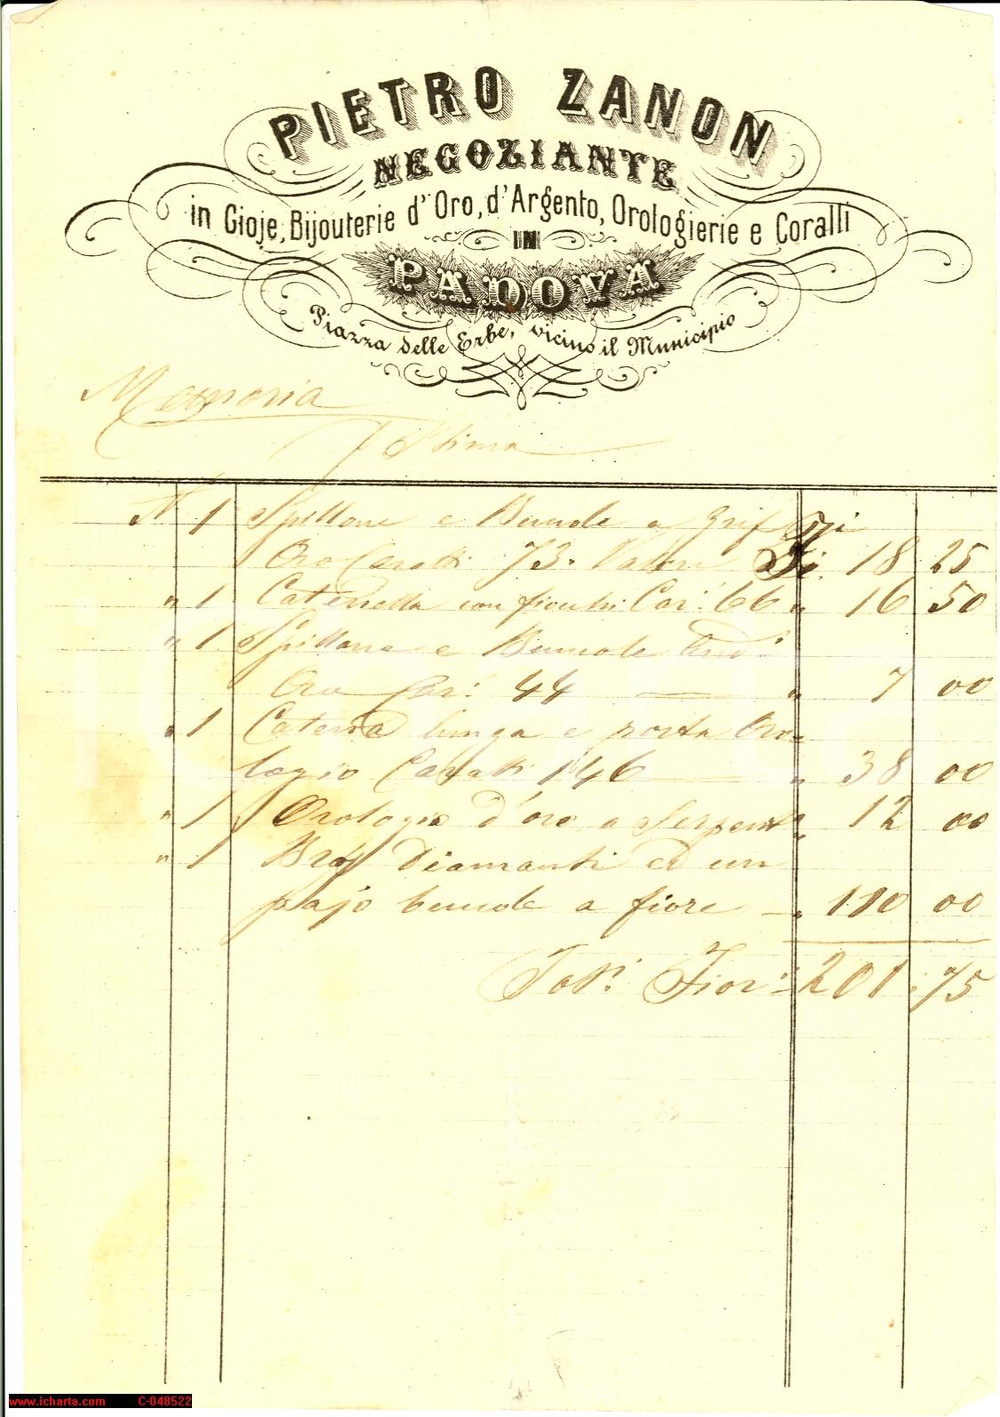 PIETRO ZANON
NEGOZIANTE
in Gioje, Bijouterie d'Oro, d'Argento, Orologierie e Coralli
IN
PADOVA
Piazza delle Erbe, vicino il Municipio
Memoria
Stima
N 1 Spillone e Buccole a
Oro Caratti 73. Valore Fi. 18 25
" 1 Catenella con fiocchi Car: 66 " 16 50
" 1 Spillone e Buccole
Oro Car: 44 — " 7 00
" 1 Catena lunga e porta Oro=
logio Carati 146 " 38 00
" 1 Orologio d'oro a Serpent " 12 00
" 1 Diamanti ed un
pajo buccole a fiore — " 110 00
Tot: Fior: 201.75
www.icharta.com C-048522